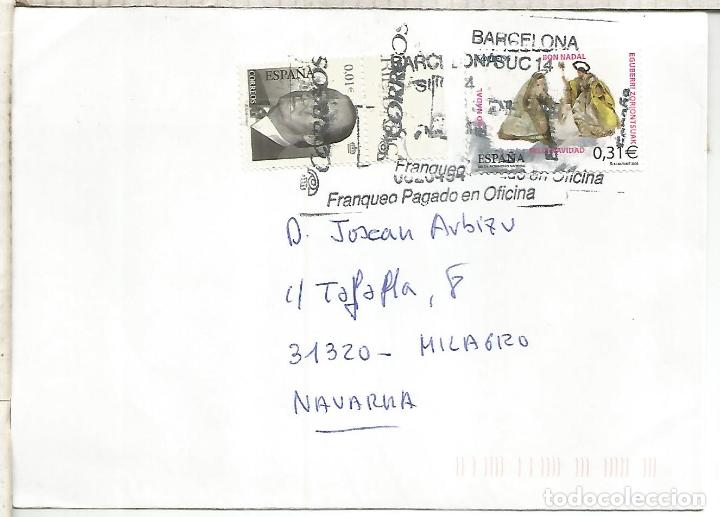 BARCELONA
SUC 14
BARCELONA
SUC 14
CORREOS
ESPAÑA
0,01€
CORREOS
BON NADAL
EGUBERRI ZORIONTSUAK
BO NADAL
FELIZ NAVIDAD
ESPAÑA
0,31€
Franqueo Pagado en Oficina
Franqueo Pagado en Oficina
D. Joxean Arbizu
c/ Tafalla, 8
31320 - MILAGRO
NAVARRA
todocoleccion.net